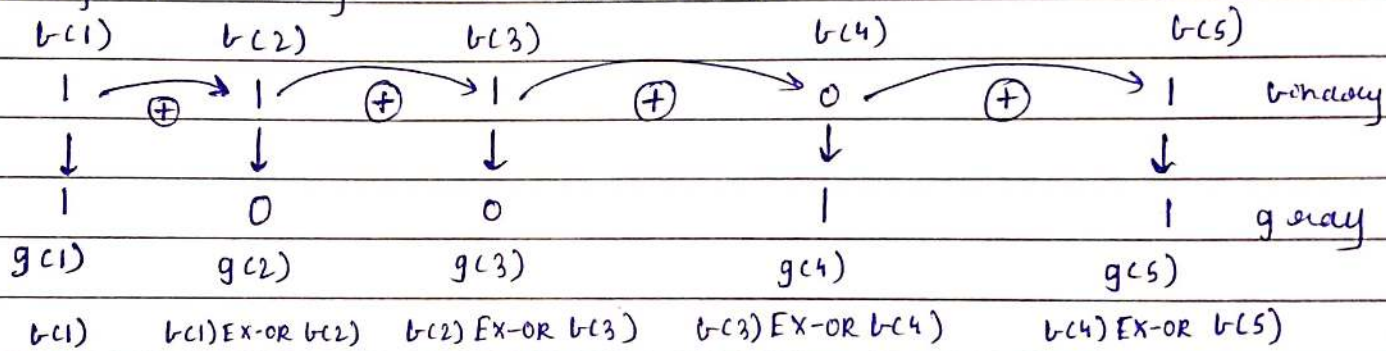 b(1) b(2) b(3) b(4) b(5)
1 ⊕ 1 ⊕ 1 ⊕ 0 ⊕ 1 binary
1 0 0 1 1 gray
g(1) g(2) g(3) g(4) g(5)
b(1) b(1) EX-OR b(2) b(2) EX-OR b(3) b(3) EX-OR b(4) b(4) EX-OR b(5)